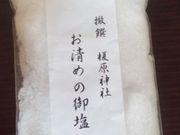 撤饌 榎原神社
お清めの御塩